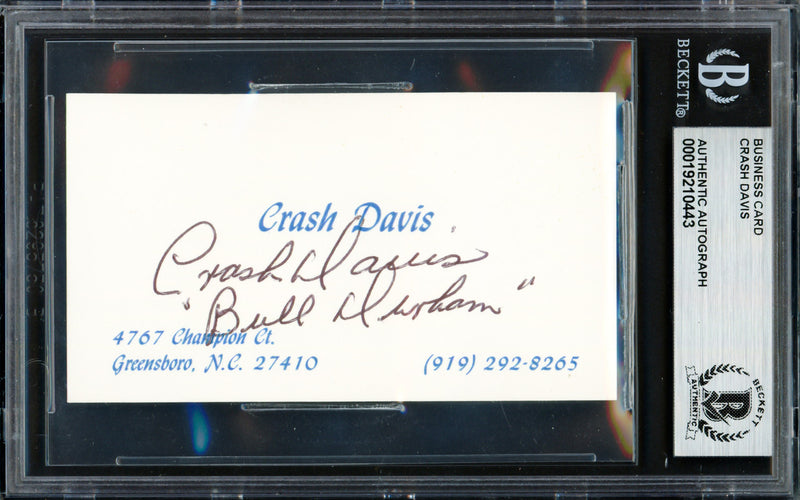 Crash Davis
Crash Davis
"Bull Durham"
4767 Champion Ct.
Greensboro, N.C. 27410
(919) 292-8265
B
BECKETT®
BUSINESS CARD
CRASH DAVIS
AUTHENTIC AUTOGRAPH
00019210443
BECKETT
B
AUTHENTIC